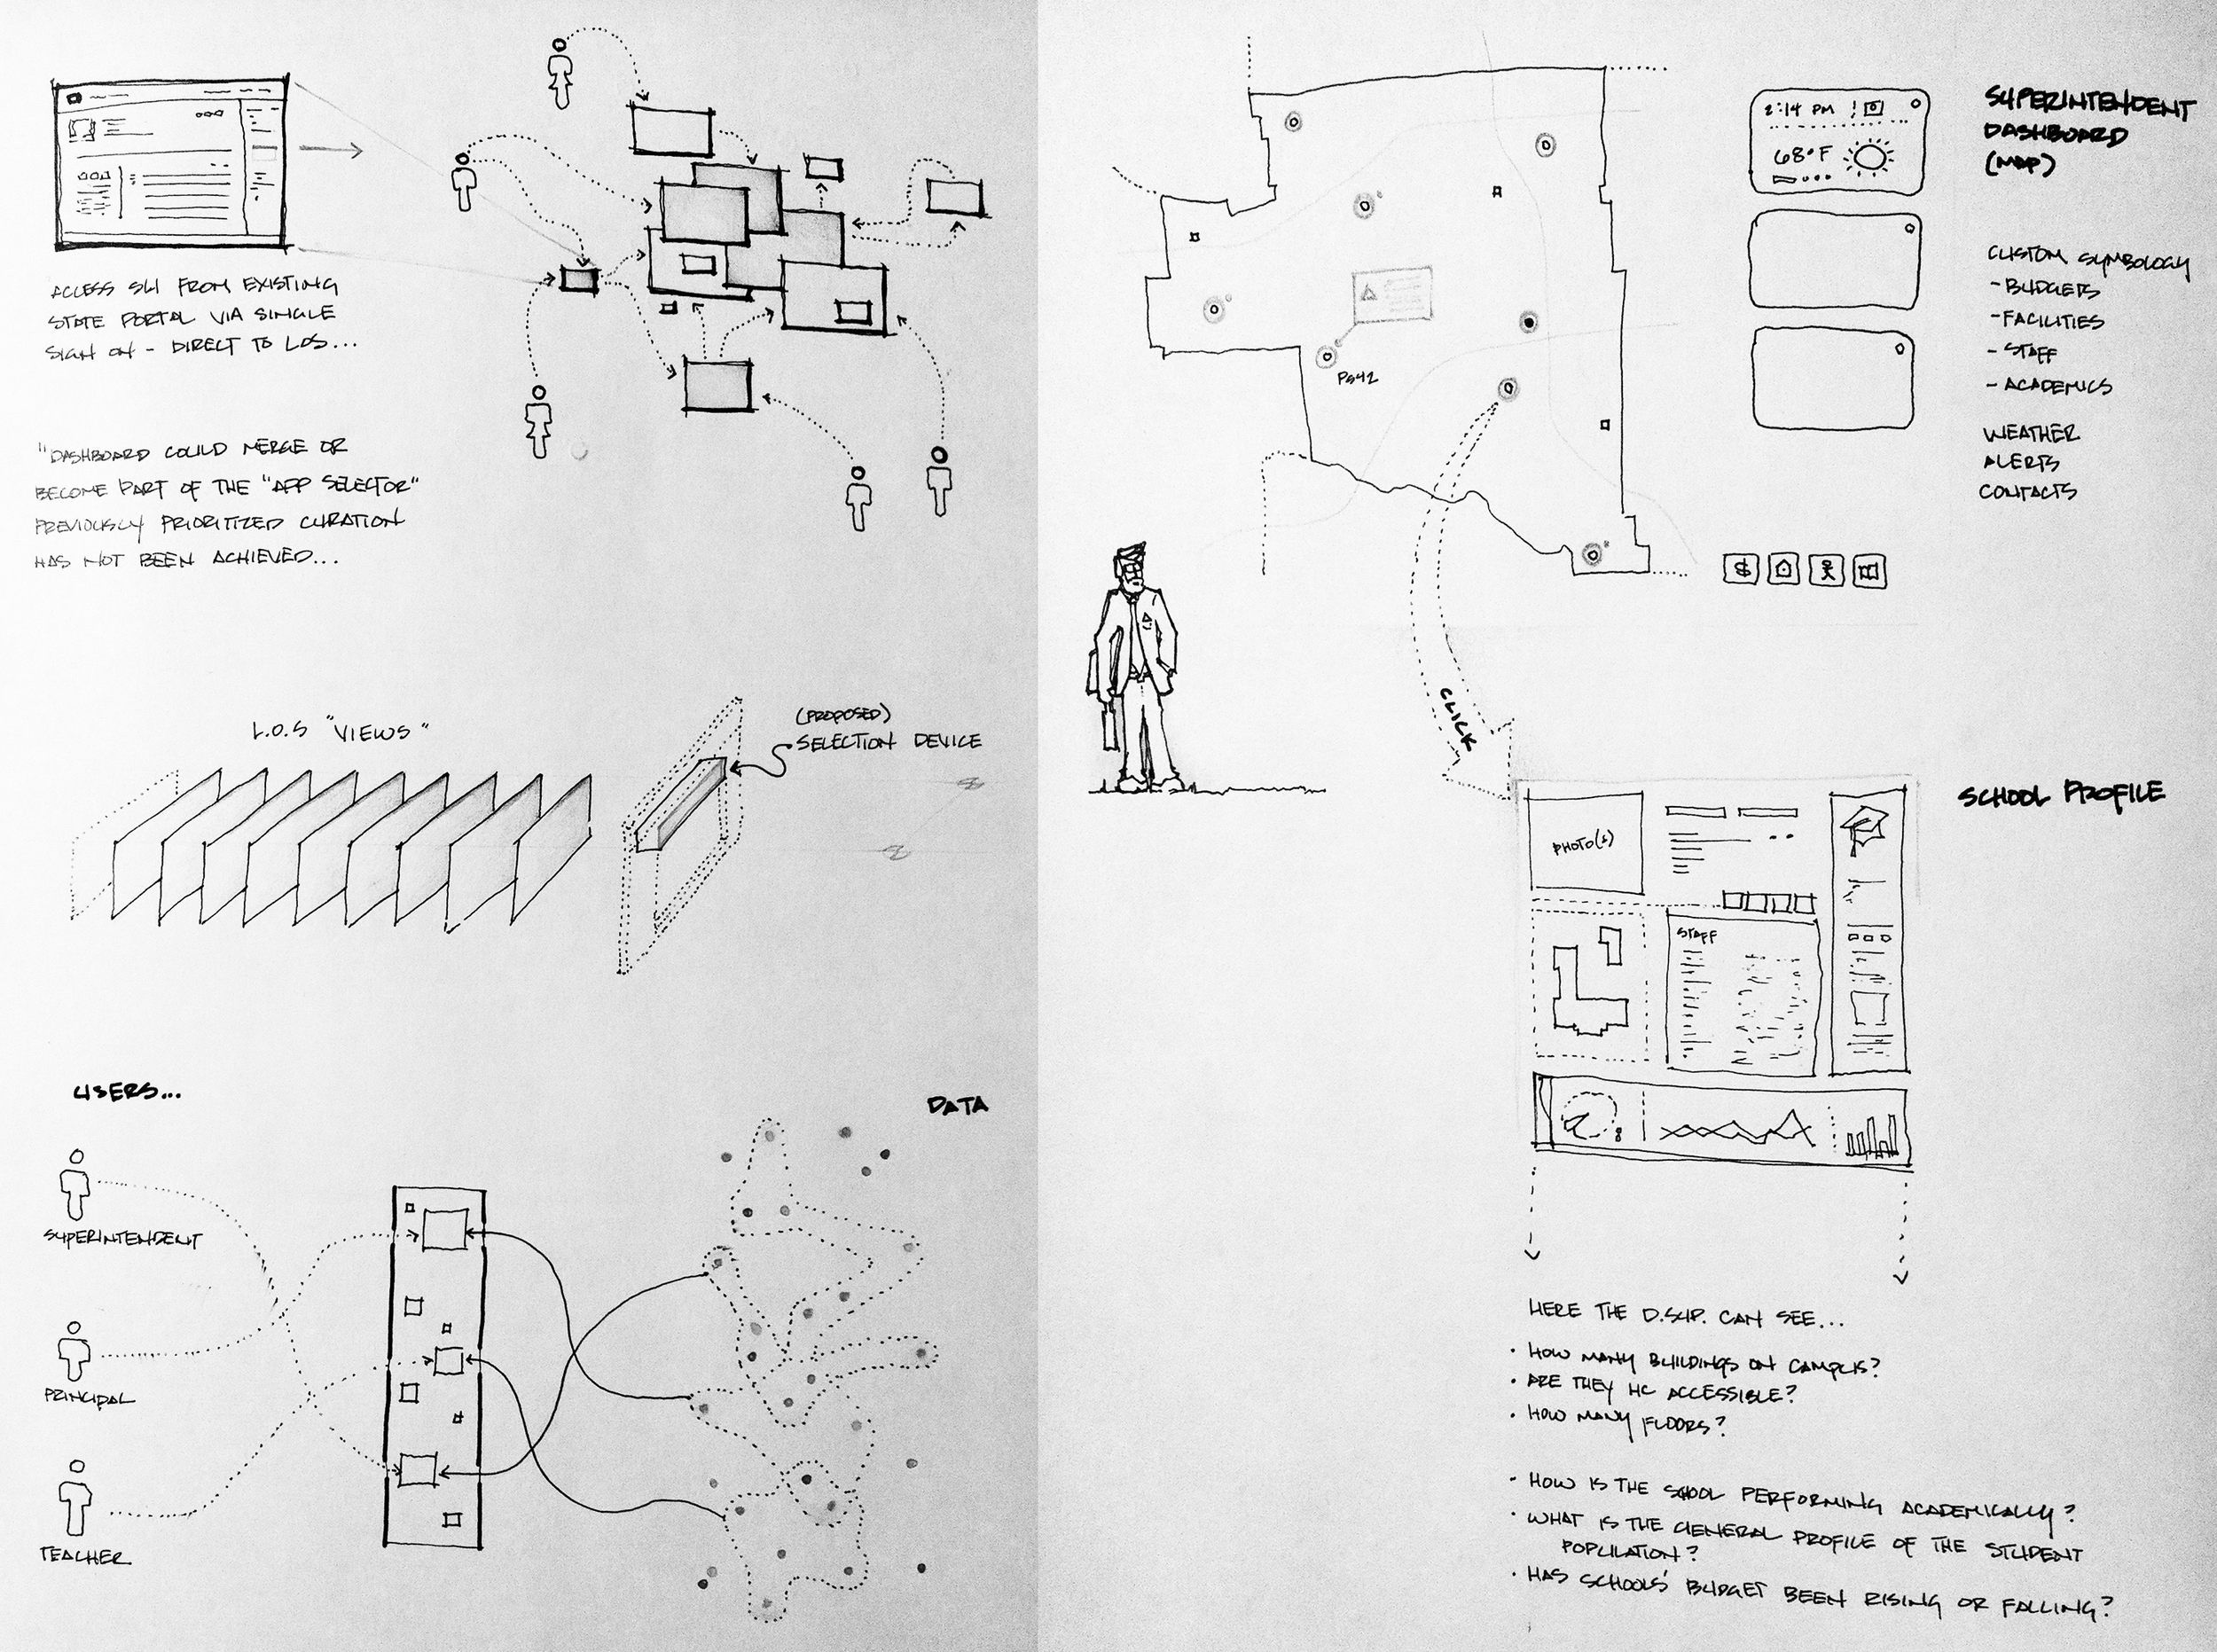 ACCESS SLI FROM EXISTING
STATE PORTAL VIA SINGLE
SIGN ON - DIRECT TO LOS...
"DASHBOARD COULD MERGE OR
BECOME PART OF THE "APP SELECTOR"
PREVIOUSLY PRIORITIZED CURATION
HAS NOT BEEN ACHIEVED...
L.O.S "VIEWS"
(PROPOSED)
SELECTION DEVICE
USERS...
DATA
SUPERINTENDENT
PRINCIPAL
TEACHER
PS42
CLICK
2:14 PM !
68°F
SUPERINTENDENT
DASHBOARD
(MAP)
CUSTOM SYMBOLOGY
- BUDGETS
- FACILITIES
- STAFF
- ACADEMICS
WEATHER
ALERTS
CONTACTS
$
SCHOOL PROFILE
PHOTO(S)
STAFF
HERE THE D.SUP. CAN SEE...
• HOW MANY BUILDINGS ON CAMPUS?
• ARE THEY HC ACCESSIBLE?
• HOW MANY FLOORS?
• HOW IS THE SCHOOL PERFORMING ACADEMICALLY?
• WHAT IS THE GENERAL PROFILE OF THE STUDENT
POPULATION?
• HAS SCHOOLS' BUDGET BEEN RISING OR FALLING?